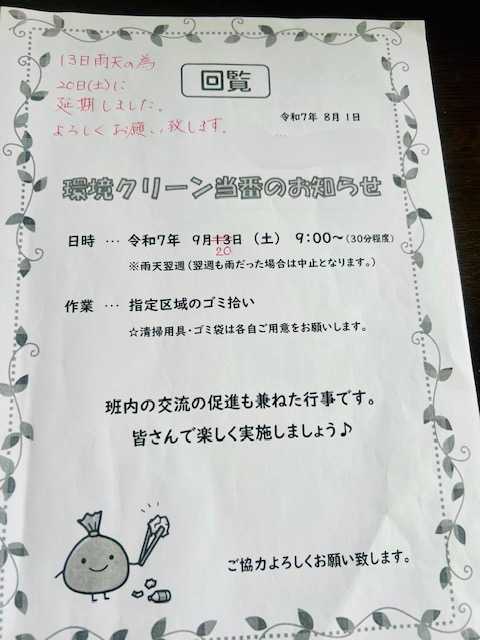 13日雨天の為
20日(土)に
延期しました。
よろしくお願い致します。
回覧
令和7年 8月1日
環境クリーン当番のお知らせ
日時 … 令和7年 9月13日(土) 9:00～(30分程度)
20
※雨天翌週(翌週も雨だった場合は中止となります。)
作業 … 指定区域のゴミ拾い
☆清掃用具・ゴミ袋は各自ご用意をお願いします。
班内の交流の促進も兼ねた行事です。
皆さんで楽しく実施しましょう♪
ご協力よろしくお願い致します。